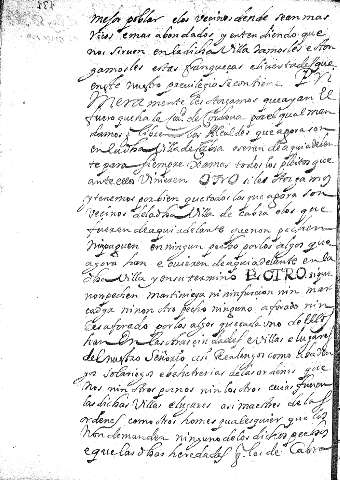 mejor poblar e los vecinos dende sean mas
ricos e mas abondados y entendiendo que
nos sirven en la dicha Villa damosles e otor
gamosles estas franquezas e livertades que
en este nuestro previlegio se contiene Pri
Mera mente les otorgamos que ayan el
fuero que ha la de Cordova por el qual man
damos los Alcaldes que agora son
en la dha Villa de Cabra o seran de aqui delan
te para siempre Xamas todos los pleitos que
ante ellos Vinieren OTROsi les otorgamos
y tenemos por bien que todos los que agora son
vecinos de la dha Villa de Cabra o los que
fueren de aqui adelante que non pechen
nin paguen en ningun pecho por los algos que
agora han e ovieren de aqui adelante en la
dha Villa y en su termino OTROsi que
non pechen martiniega ni ninfurcion nin mar
cadga nin otro pecho ninguno aforado nin
desaforado por los algos que cada uno dellos
han en las otras ciudades e Villas e lugares
del nuestro Señorio asi Realengos como Abaden
gos solariegos e behetrias de los ordenes que
Nos nin otros por nos nin los otros cuias fueren
las dichas Villas e lugares asi maestres de las
ordenes como otros homes qualesquier que los
Non demanden ninguno de los dichos pechos
e que las dhas heredades los de Cabra